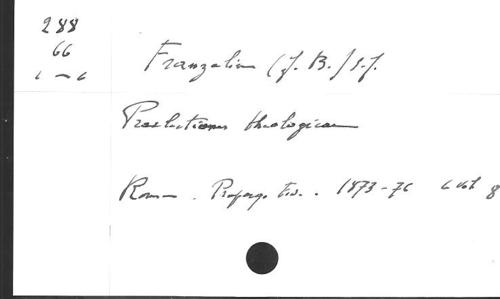 288
66
1-6
Franzelin (J. B.) s.j.
Praelectiones theologicae
Romae. Propag. Fid. 1873-76 6 vol 8